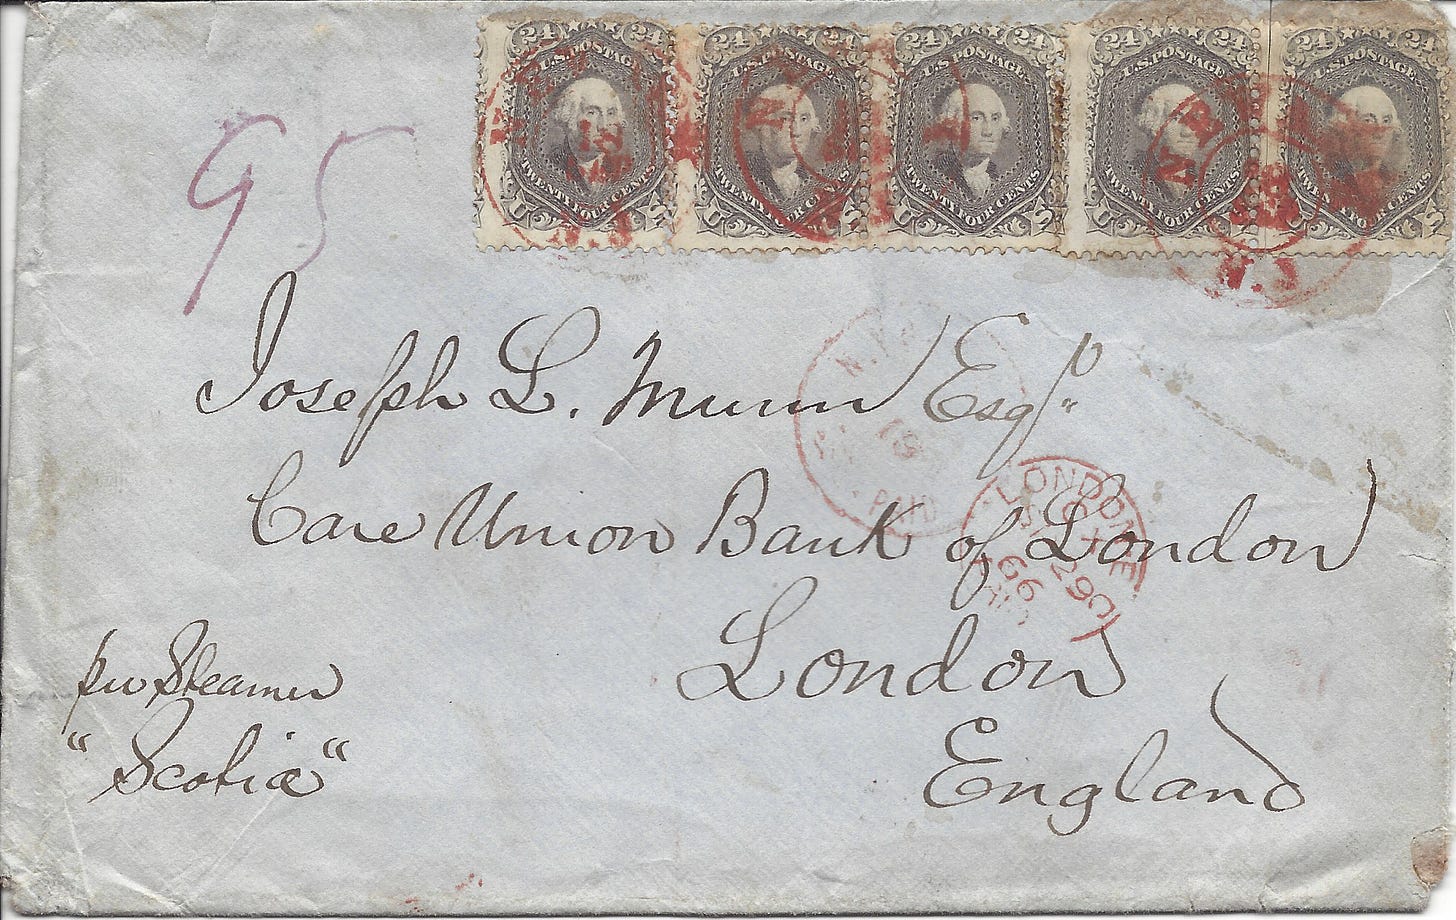 24 24 24 24 24 24 24 24 24 24
U.S. POSTAGE U.S. POSTAGE U.S. POSTAGE U.S. POSTAGE U.S. POSTAGE
TWENTY FOUR CENTS TWENTY FOUR CENTS TWENTY FOUR CENTS TWENTY FOUR CENTS
U S U S U S U S U S
N.J
95
Joseph L. Munn Esqr
Care Union Bank of London
London
England
per Steamer
"Scotia"
N.Y.
19
PAID
LONDON
29
66